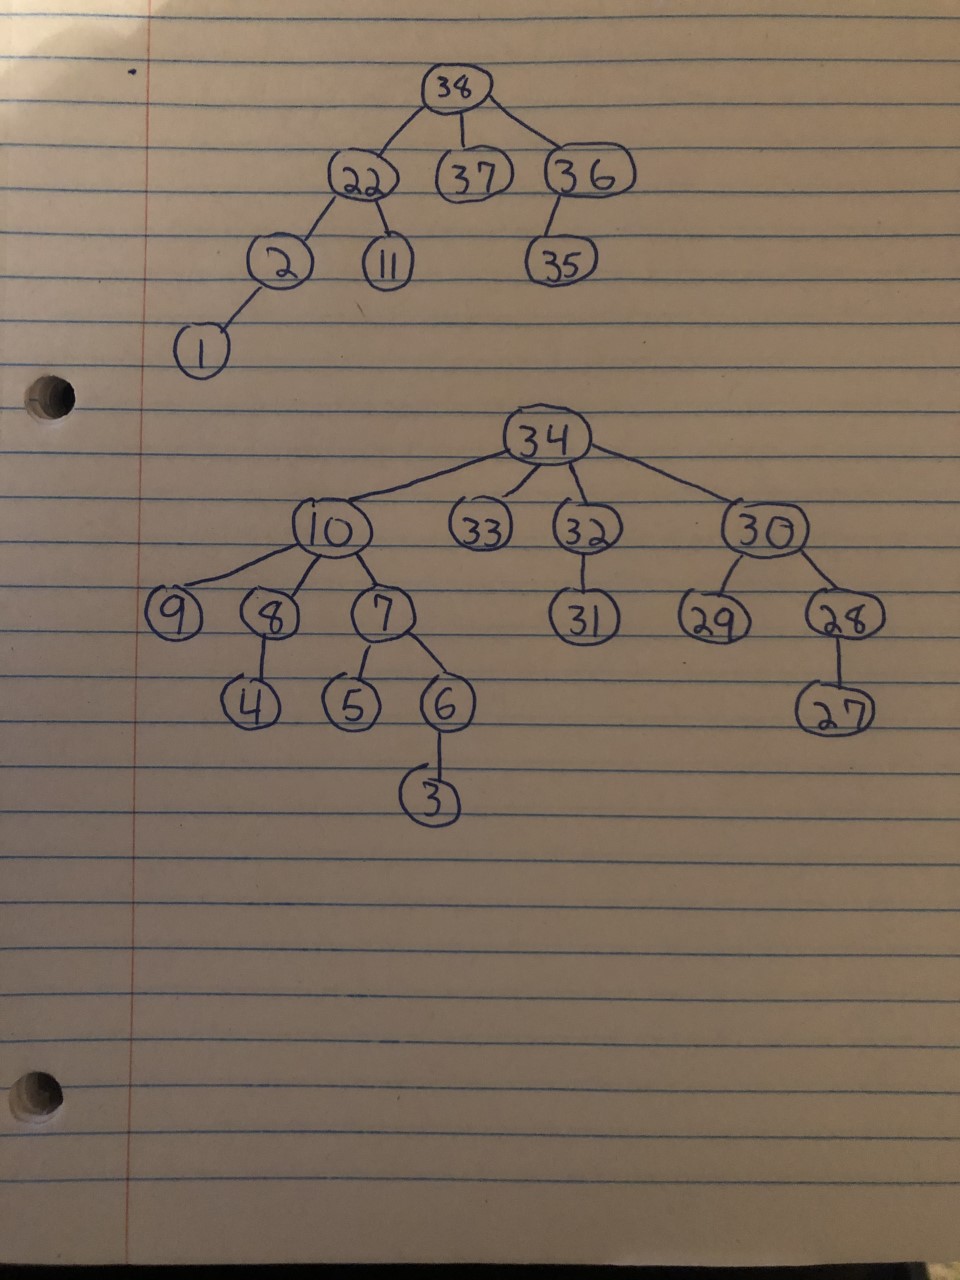 38
22 37 36
2 11 35
1
34
10 33 32 30
9 8 7 31 29 28
4 5 6 27
3